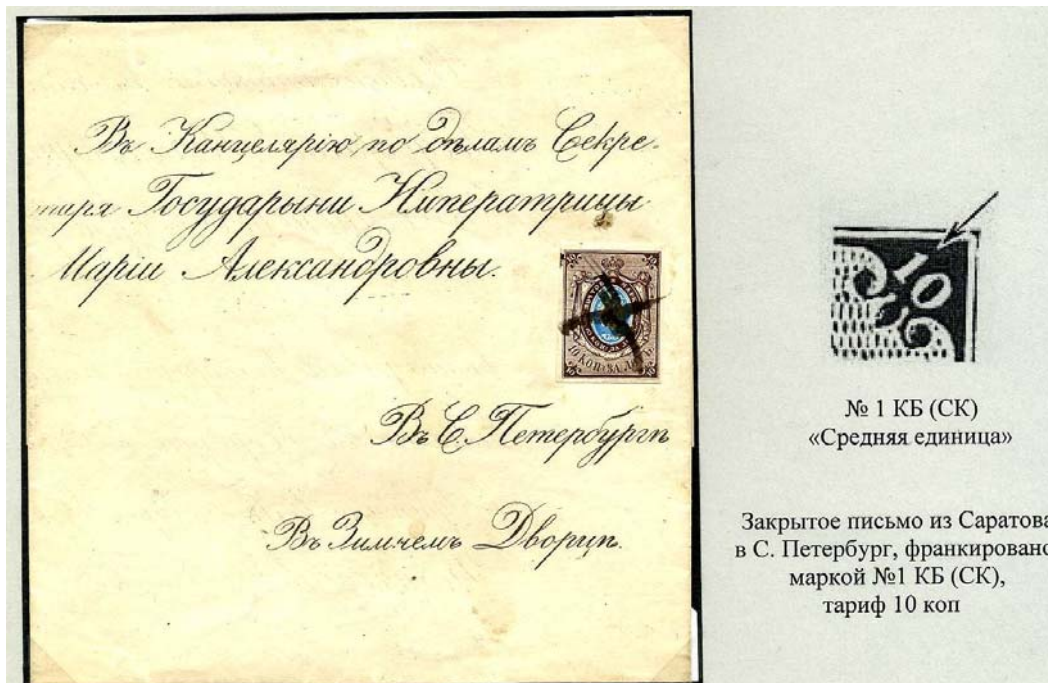 Въ Канцелярію, по дѣламъ Секре-
таря Государыни Императрицы
Маріи Александровны.
10 КОП. ЗА ЛОТЪ
Въ С. Петербургѣ
Въ Зимнемъ Дворцѣ.
10
№ 1 КБ (СК)
«Средняя единица»
Закрытое письмо из Саратова
в С. Петербург, франкировано
маркой №1 КБ (СК),
тариф 10 коп